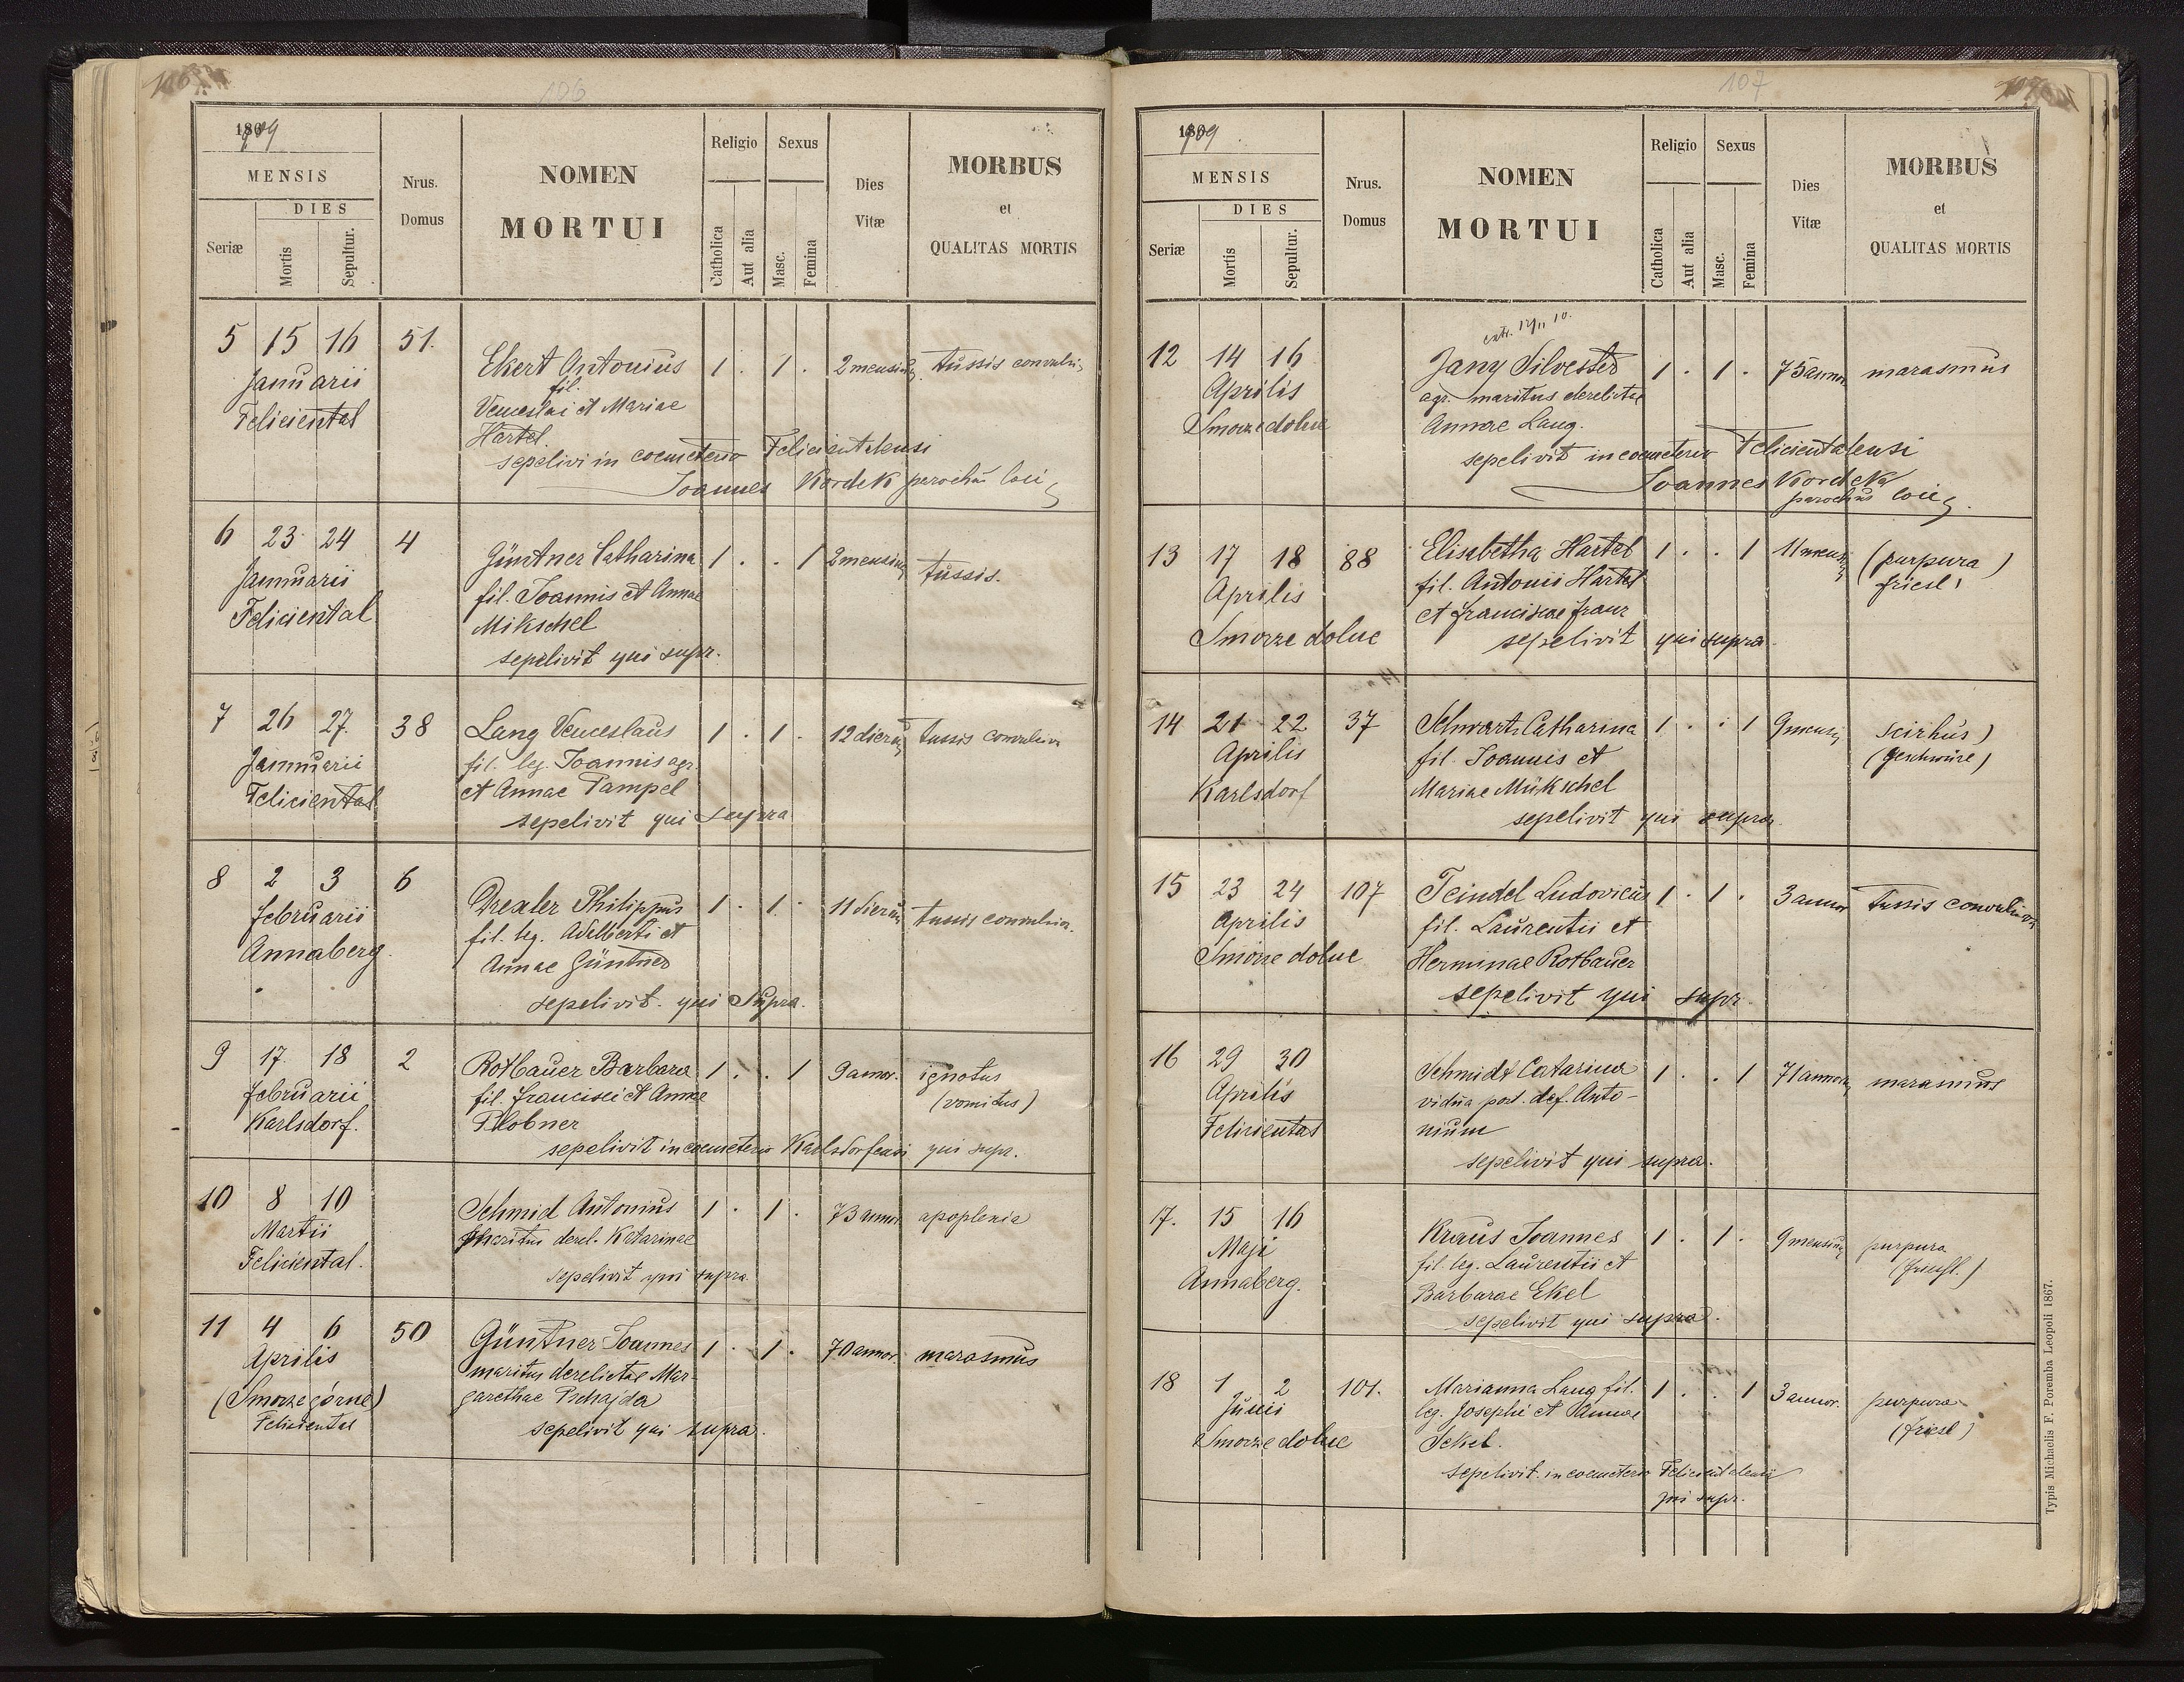 106
106
1909
MENSIS
DIES
Seriæ
Mortis
Sepultur.
Nrus.
Domus
NOMEN
MORTUI
Religio
Sexus
Catholica
Aut alia
Masc.
Femina
Dies
Vitæ
MORBUS
et
QUALITAS MORTIS
5 15 16 51.
Januarii
Feliciental
Ekert Antonius 1 . 1 . 2 mensium tussis convulsiv
fil.
Venceslai et Mariae
Hartel.
sepelivi in coemeterio Felicientalensi
Joannes Kordek parochus loci
6 23 24 4
Januarii
Feliciental
Güntner Catharina 1 . . 1 2 mensium tussis.
fil. Joannis et Annae
Mikschel
sepelivit qui supr.
7 26 27. 38
Januarii
Feliciental
Lang Venceslaus 1 . 1 . 12 dierum tussis convulsiva
fil. leg. Joannis agr.
et Annae Pampel
sepelivit qui supra
8 2 3 6
februarii
Annaberg.
Drexler Philippus 1 . 1 . 11 dierum tussis convulsiva.
fil. leg. Adelberti et
Annae Güntner
sepelivit. qui Supra.
9 17. 18 2
februarii
Karlsdorf.
Rotbauer Barbara 1 . . 1 9 annor. ignotus
(vomitus)
fil. Francisci et Annae
Plobner
sepelivit in coemeterio Karlsdorfensi qui supr.
10 8 10
Martii
Feliciental.
Schmid Antonius 1 . 1 . 73 annor. apoplexia
maritus derel. Katarinae
sepelivit qui supra.
11 4 6 50
Aprilis
(Smorze górne)
Feliciental
Güntner Joannes 1 . 1 . 70 annor. marasmus
maritus derelictae Mar-
garethae Pschajda
sepelivit qui supra.
107
1909.
MENSIS
DIES
Seriæ
Mortis
Sepultur.
Nrus.
Domus
NOMEN
MORTUI
Religio
Sexus
Catholica
Aut alia
Masc.
Femina
Dies
Vitæ
MORBUS
et
QUALITAS MORTIS
12 14 16
Aprilis
Smorze dolne
Jany Silvester 1 . 1 . 75 annor. marasmus
agr. maritus derelictae
Annae Lang.
sepelivit in coemeterio Felicientalensi
Joannes Kordek
parochus loci
13 17 18 88
Aprilis
Smorze dolne
Elisabetha Hartel 1 . . 1 11 mensium (purpura)
friesl
fil. Antonii Hartel
et Franciscae Franz
sepelivit qui supra.
14 21 22 37
Aprilis
Karlsdorf
Schwartz Catharina 1 . . 1 9 mensium scirhus)
(Geschwüre)
fil. Joannis et
Mariae Mükschel
sepelivit qui supra.
15 23 24 107
Aprilis
Smorze dolne
Teindel Ludovicus 1 . 1 . 3 annor. tussis convulsiva
fil. Laurentii et
Herminae Rotbauer
sepelivit qui supr.
16 29 30
Aprilis
Feliciental
Schmidt Catarina 1 . . 1 71 annor. marasmus
vidua post. def. Anto-
nium
sepelivit qui supra.
17. 15 16
Maji
Annaberg.
Kraus Joannes 1 . 1 . 9 mensium purpura
(friesl.)
fil. leg. Laurentii et
Barbarae Ekel
sepelivit qui supra.
18 1 2 101.
Junii
Smorze dolne
Marianna Lang fil. 1 . . 1 3 annor. purpura
(friesl)
leg. Josephi et Annae
Sekel.
sepelivit in coemeterio Felicientalensi
qui supr.
Typis Michaelis F. Poremba Leopoli 1867.